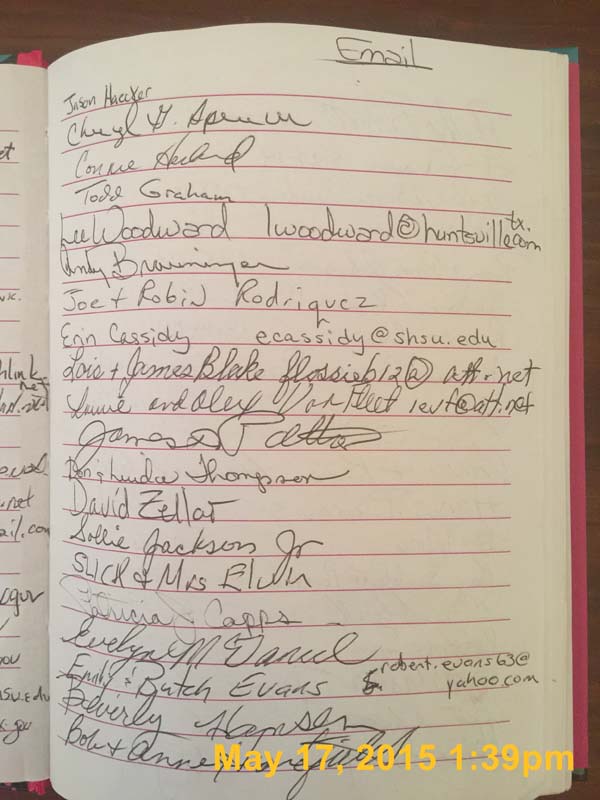 Email
Jason Haecker
Cheryl G. Spencer
Connie
Todd Graham
Lee Woodward lwoodward@huntsvilletx.com
Andy
Joe + Robin Rodriguez
Erin Cassidy ecassidy@shsu.edu
Lois + James Blake flossieb12@att.net
and Oley Van Fleet levf@att.net
James
Don & Lundee Thompson
David Zellar
Sollie Jackson Jr
SLICK & Mrs Elvin
Patricia Capps
Evelyn McDaniel
Emily & Butch Evans robert.evans63@
yahoo.com
Beverly Hansen
Bob & Anne
May 17, 2015 1:39pm